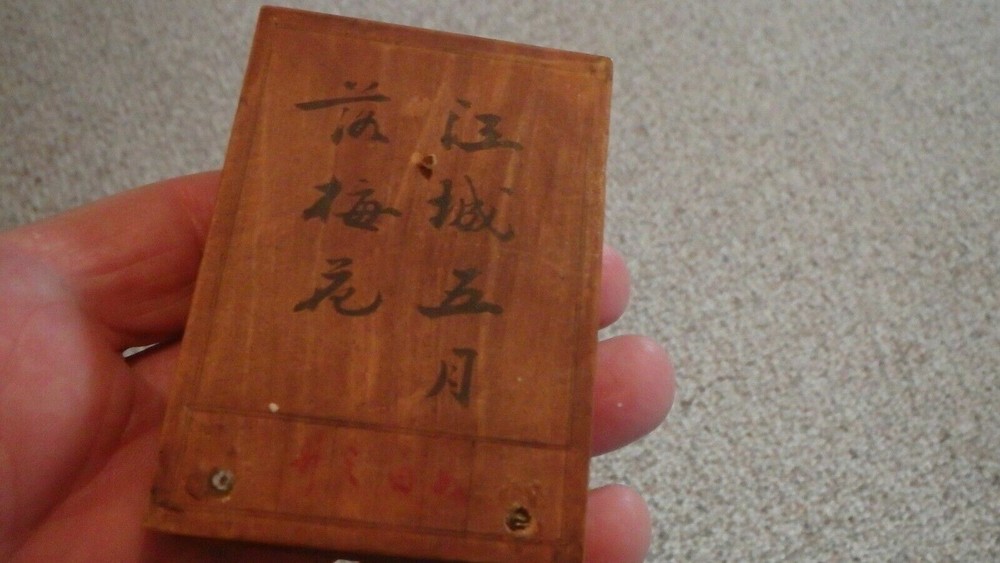 江城五月
落梅花